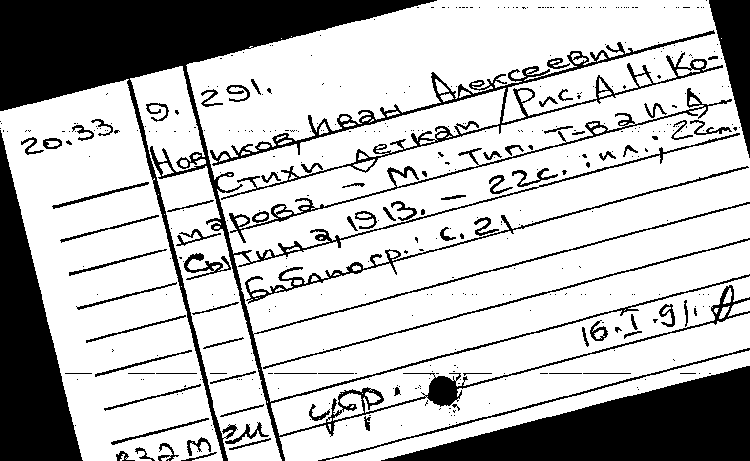 20.33. 9. 291.
Новиков, Иван Алексеевич.
Стихи деткам / Рис. А. Н. Ко-
марова. – М. : Тип. т-ва И. Д.
Сытина, 1913. – 22с. : ил.; 22см.
Библиогр.: с. 21.
16.I.91.